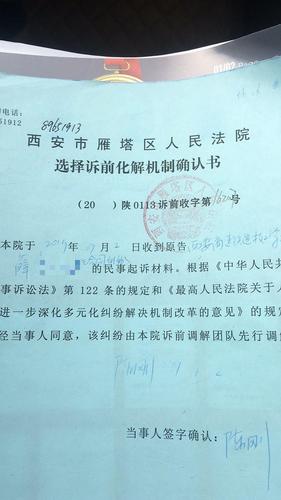 电话:
51912
89651913
西安市雁塔区人民法院
选择诉前化解机制确认书
(20 )陕0113诉前收字第 号
本院于2019年9月2日收到原告
薛 的民事起诉材料。根据《中华人民共
事诉讼法》第122条的规定和《最高人民法院关于人
进一步深化多元化纠纷解决机制改革的意见》的规
经当事人同意,该纠纷由本院诉前调解团队先行调
陈刚
当事人签字确认:陈刚